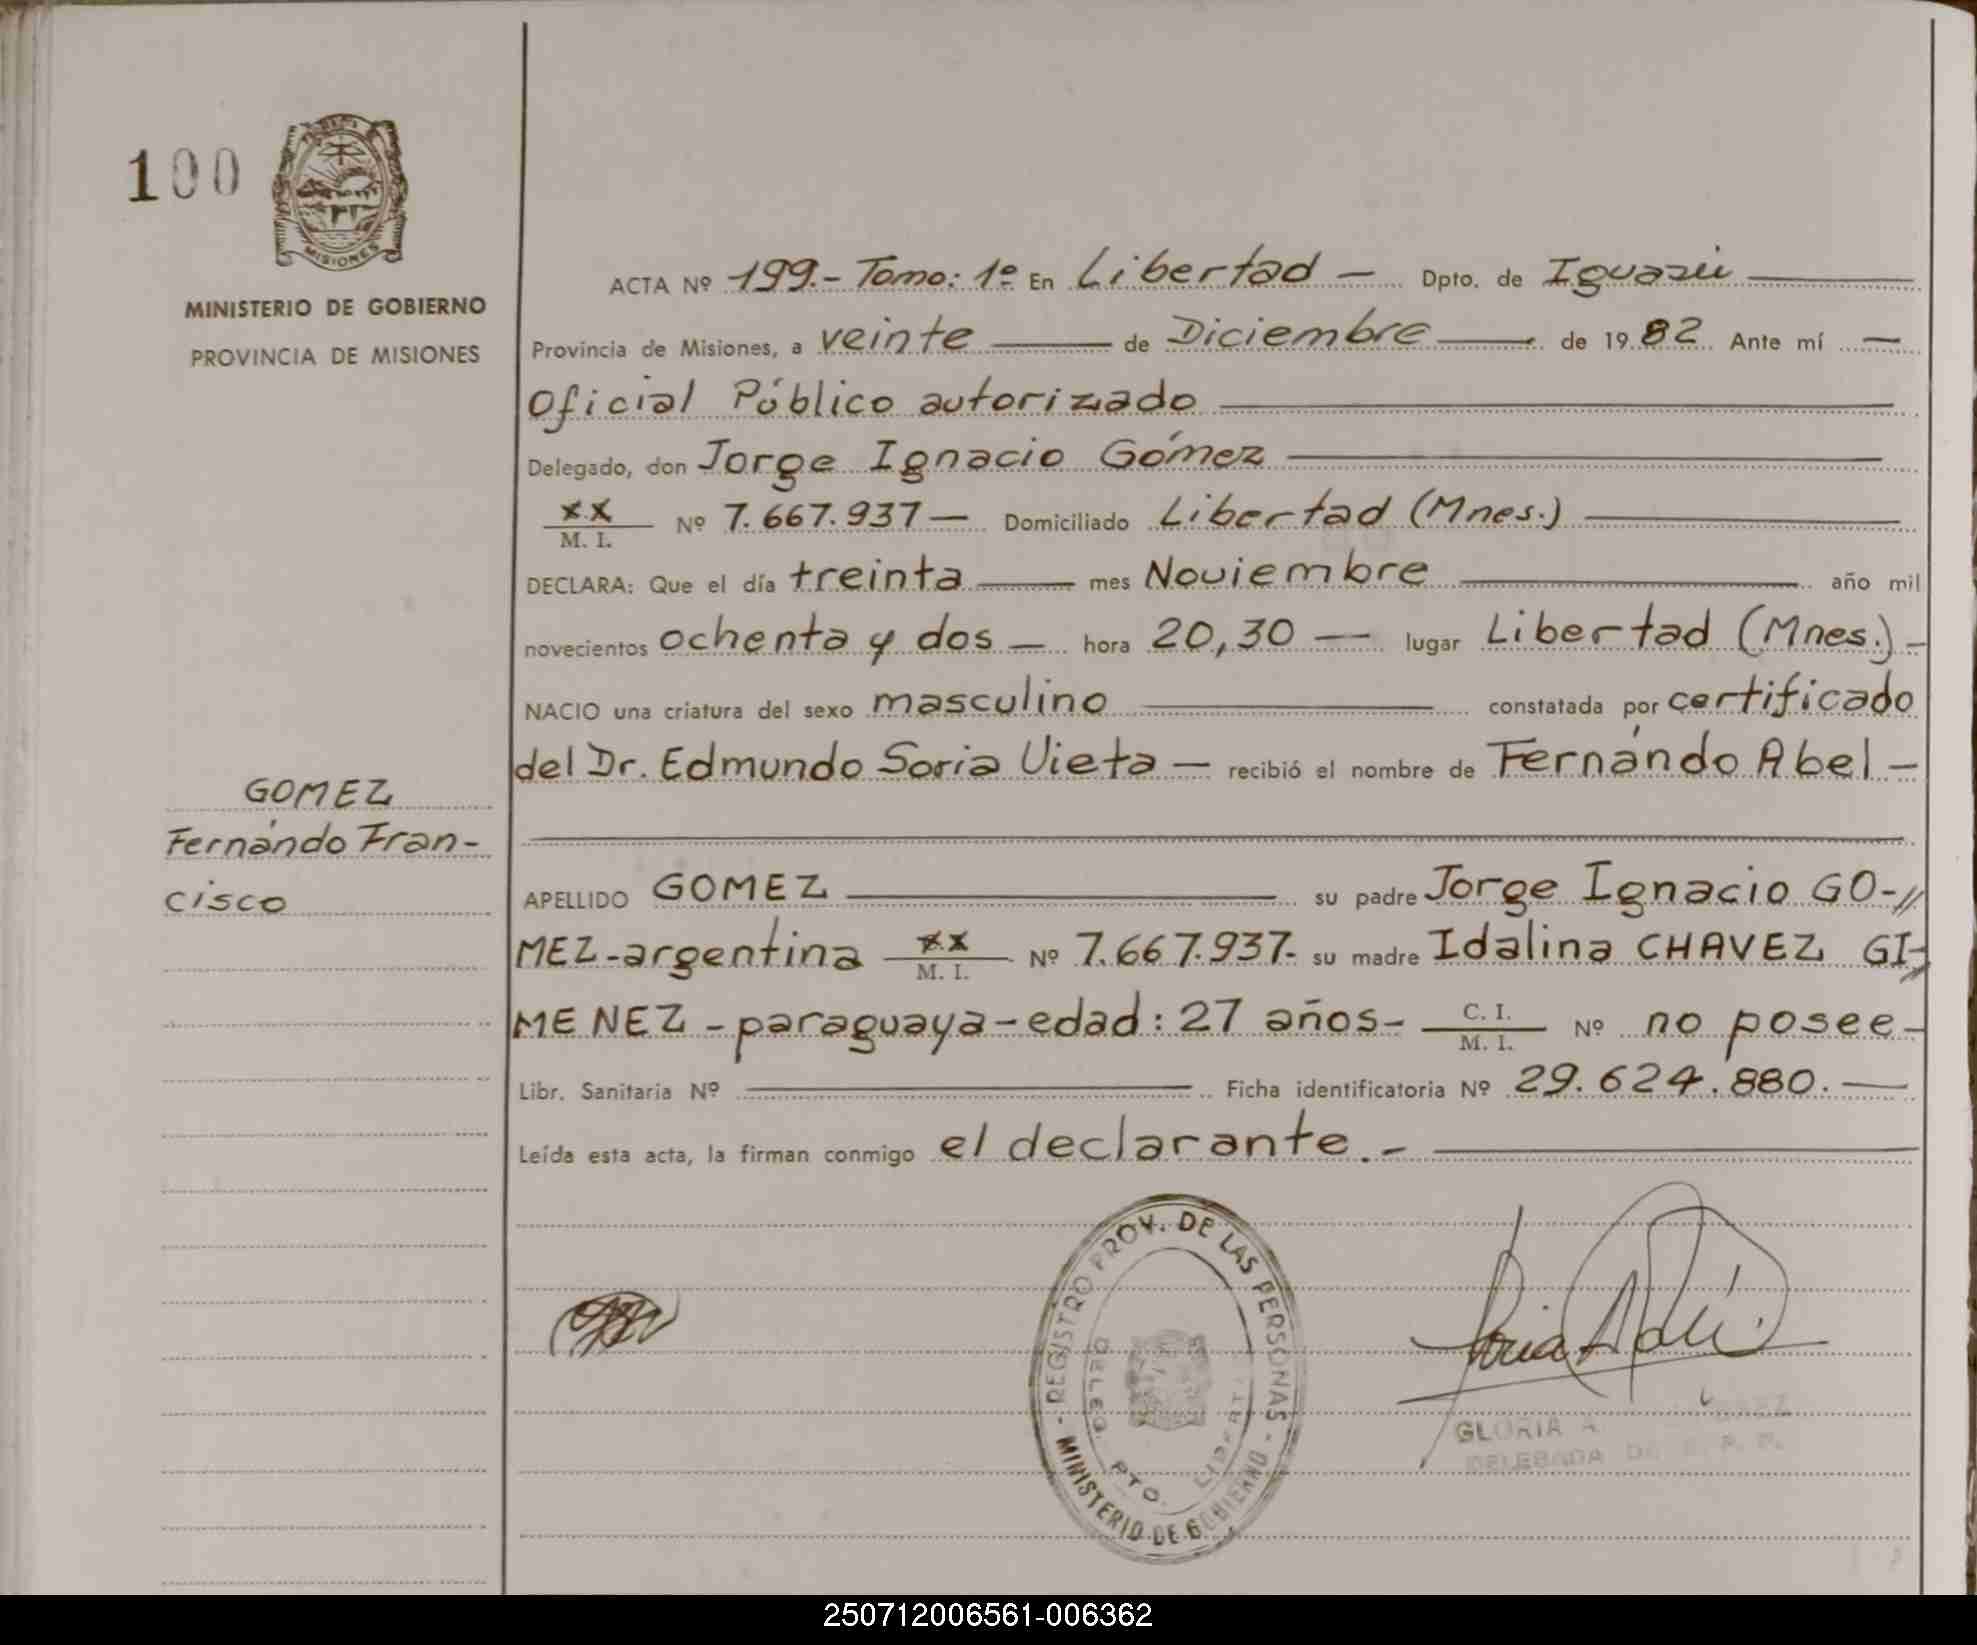 100
MISIONES
MINISTERIO DE GOBIERNO
PROVINCIA DE MISIONES
GOMEZ
Fernándo Fran-
cisco
ACTA Nº 199.- Tomo: 1º En Libertad — Dpto. de Iguazú
Provincia de Misiones, a veinte — de Diciembre — de 1982 Ante mí —
Oficial Público autorizado
Delegado, don Jorge Ignacio Gómez
xx M. I. Nº 7.667.937 — Domiciliado Libertad (Mnes.)
DECLARA: Que el día treinta — mes Noviembre — año mil
novecientos ochenta y dos — hora 20,30 — lugar Libertad (Mnes.) -
NACIO una criatura del sexo masculino — constatada por certificado
del Dr. Edmundo Soria Vieta — recibió el nombre de Fernándo Abel —
APELLIDO GOMEZ — su padre Jorge Ignacio GO-//
MEZ-argentina xx M. I. Nº 7.667.937.- su madre Idalina CHAVEZ GI-//
MENEZ - paraguaya - edad: 27 años- C. I. M. I. Nº no posee -
Libr. Sanitaria Nº — Ficha identificatoria Nº 29.624.880. —
Leída esta acta, la firman conmigo el declarante.-
REGISTRO PROV. DE LAS PERSONAS - MINISTERIO DE GOBIERNO -
PTO.
GLORIA A
DELEGADA
250712006561-006362